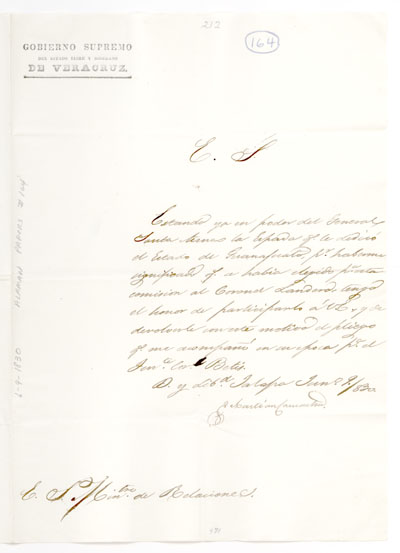 212
164
GOBIERNO SUPREMO
DEL ESTADO LIBRE Y SOBERANO
DE VERACRUZ.
E. S.
Estando ya en poder del General
Santa Anna la Espada qe. le dedicó
el Estado de Guanajuato, pr. haberme
significado qe. a había elegido pa. esta
comision al Coronel Landero tengo
el honor de participarlo á V.E. y de
devolverle con este motivo el pliego
qe. me acompañó en su epoca pa. el
D. y Lib.d Jalapa Jun. 9/830
E. S. Mintro. de Relaciones.
6-9-1830 ALAMAN PAPERS # 164